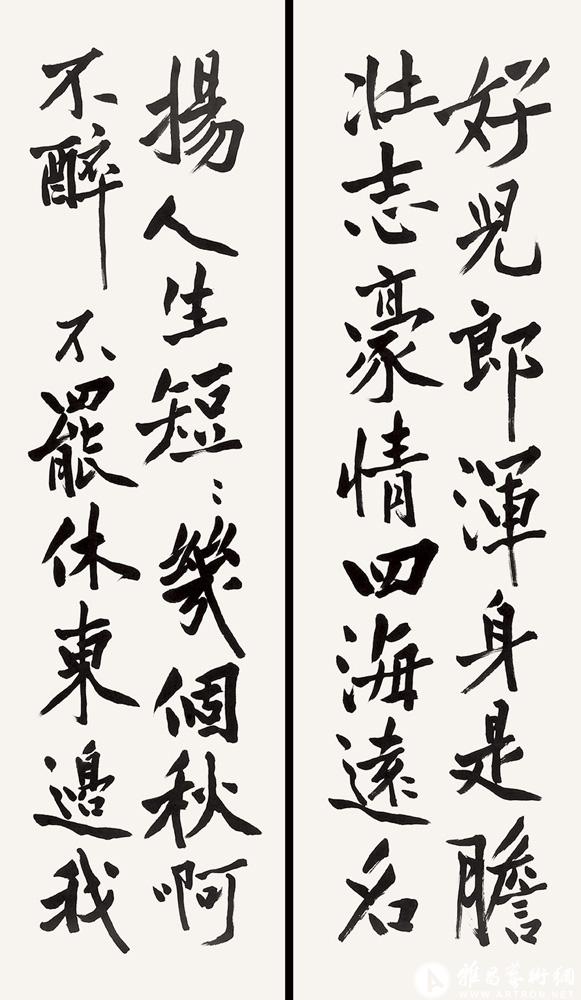 好兒郎渾身是膽
壯志豪情四海遠名
揚人生短：幾個秋啊
不醉不罷休東邊我
雅昌藝術網
WWW.ARTRON.NET